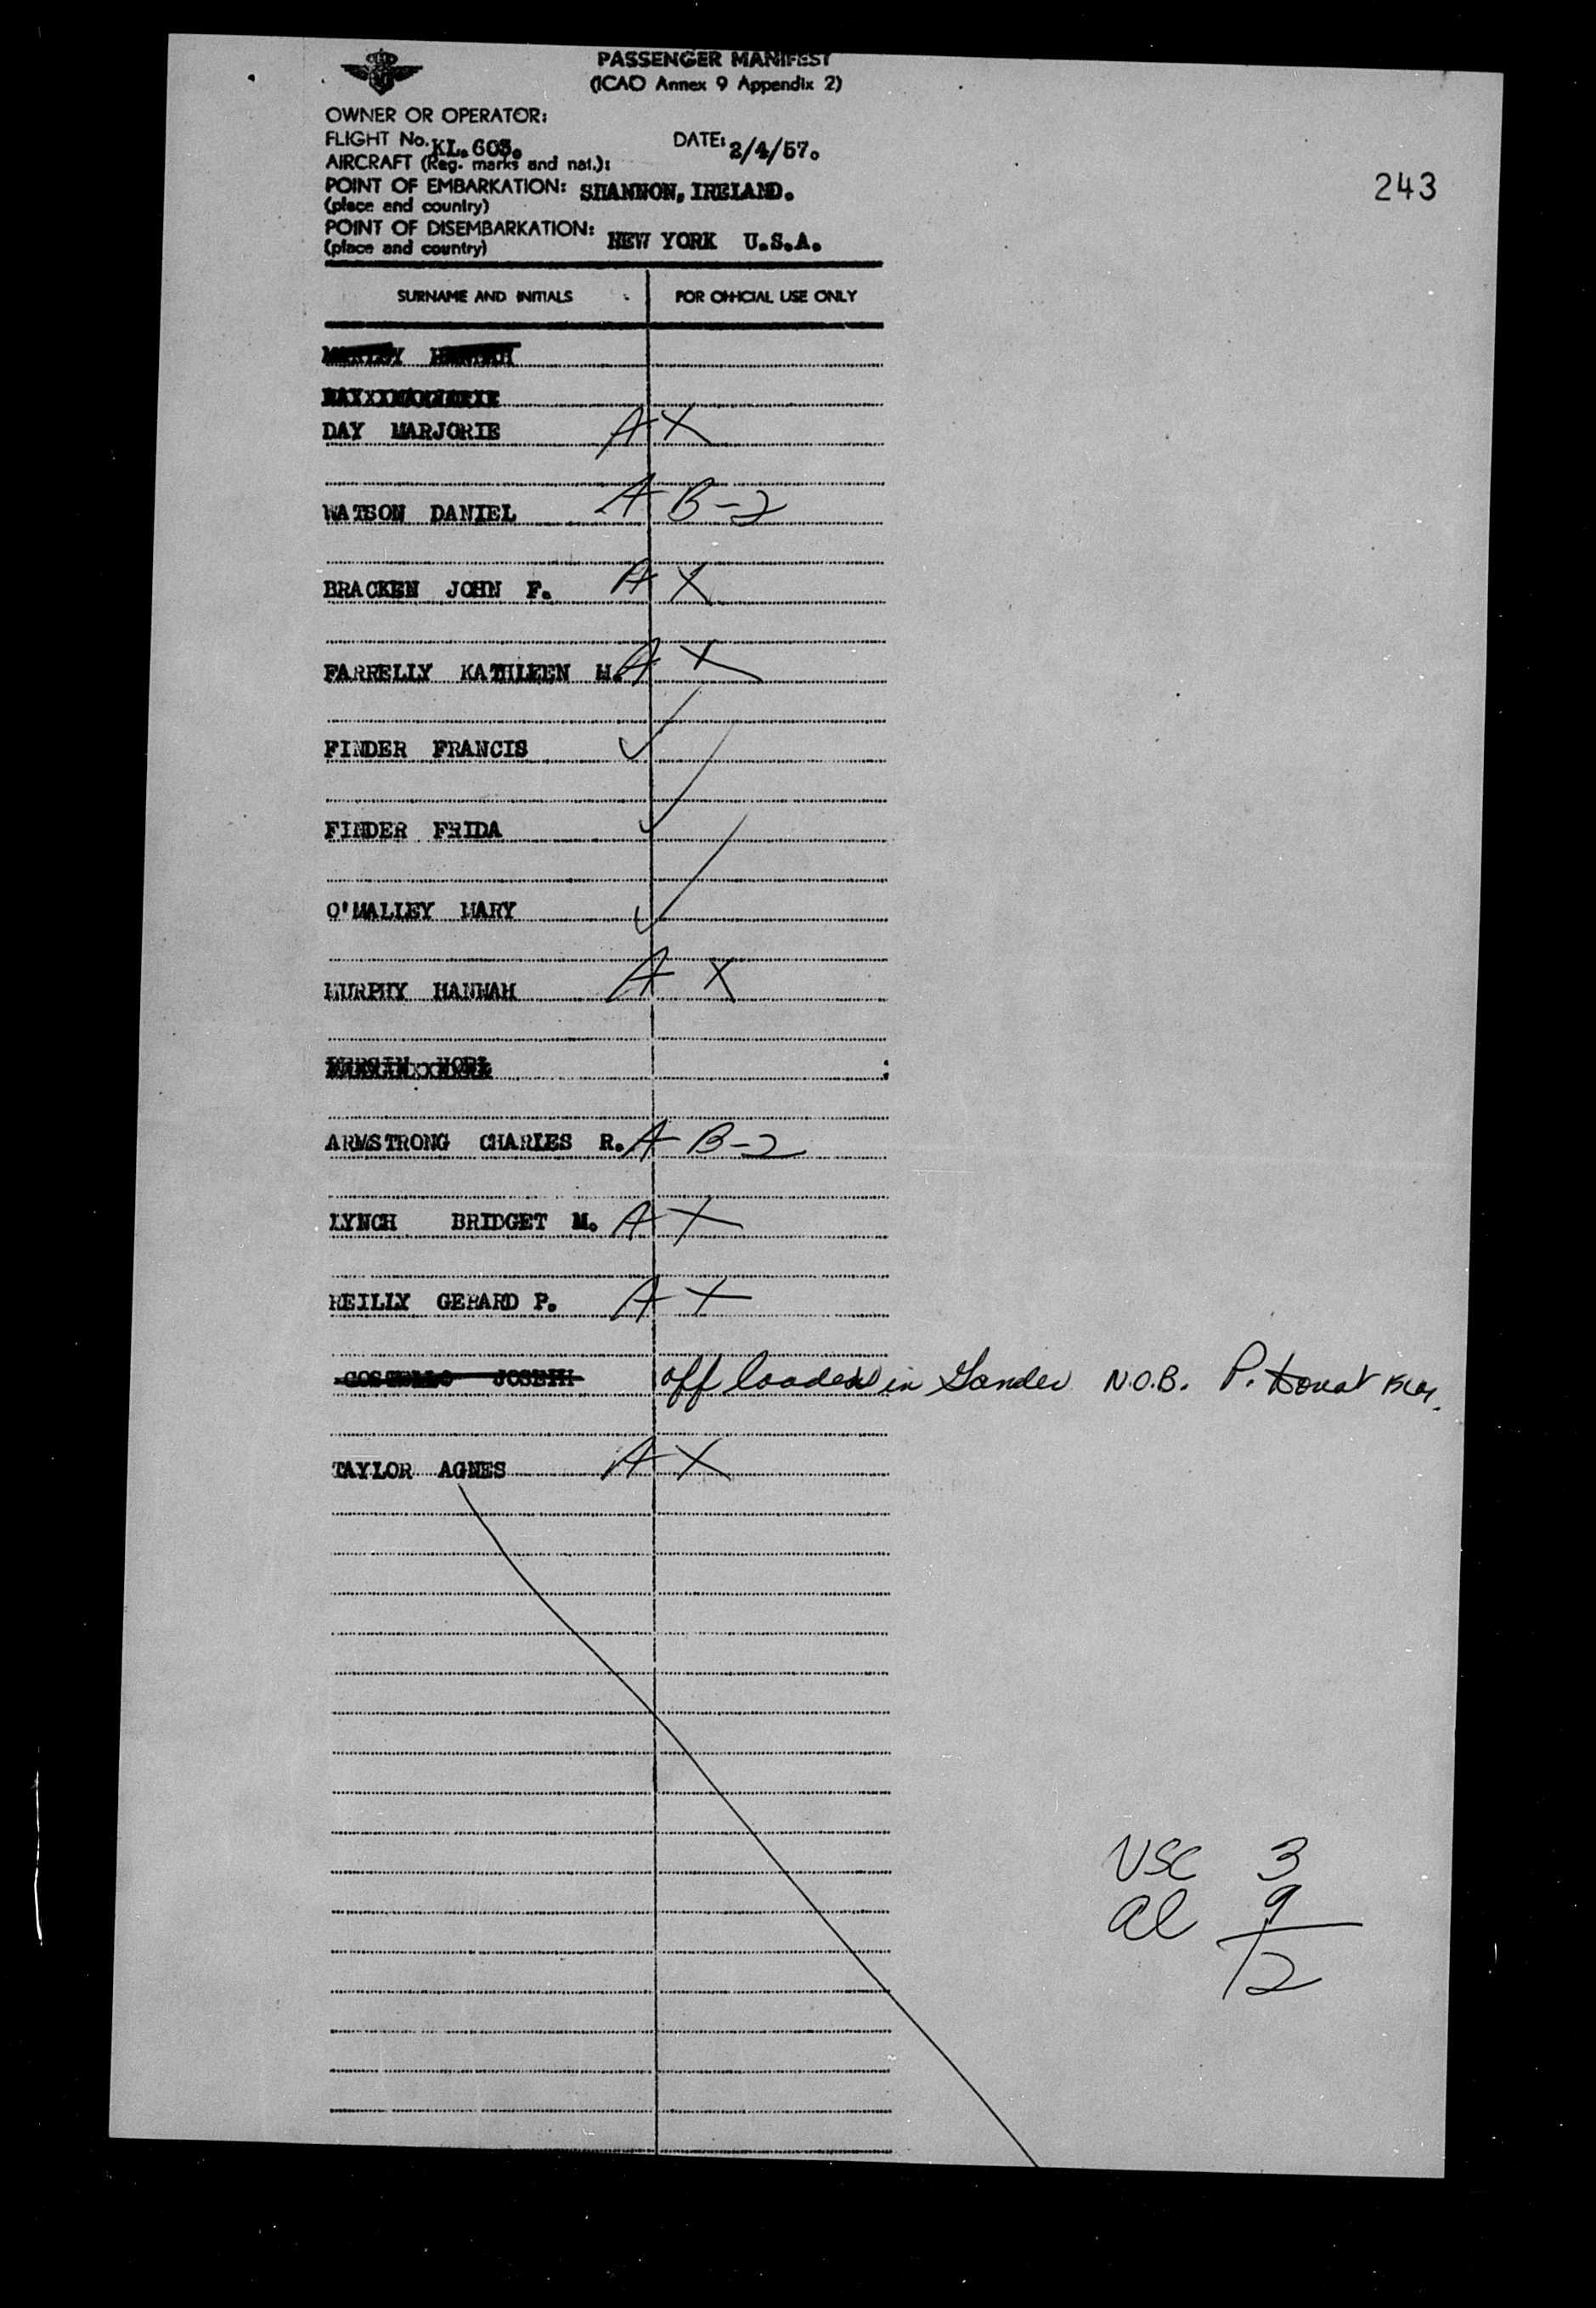 PASSENGER MANIFEST
(ICAO Annex 9 Appendix 2)
OWNER OR OPERATOR:
FLIGHT No. KL. 603. DATE: 2/4/57.
AIRCRAFT (Reg. marks and nat.):
POINT OF EMBARKATION: SHANNON, IRELAND.
(place and country)
243
POINT OF DISEMBARKATION: NEW YORK U.S.A.
(place and country)
SURNAME AND INITIALS FOR OFFICIAL USE ONLY
DAY MARJORIE A X
WATSON DANIEL A B-2
BRACKEN JOHN F. A X
FARRELLY KATHLEEN M. A X
FINDER FRANCIS ✓
FINDER FRIDA ✓
O'MALLEY MARY ✓
MURPHY HANNAH A X
ARMSTRONG CHARLES R. A B-2
LYNCH BRIDGET M. A X
REILLY GERARD P. A X
COSTELLO JOSEPH off loaded in Gander N.O.B. P.
TAYLOR AGNES A X
USC 3
al 9
12